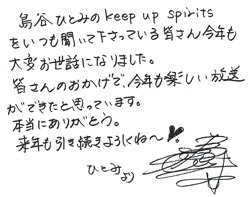 島谷ひとみのkeep up spirits
をいつも聞いて下さっている皆さん今年も
大変お世話になりました。
皆さんのおかげで、今年も楽しい放送
ができたと思っています。
本当にありがとう。
来年も引き続きようしくね〜♥
ひとみより